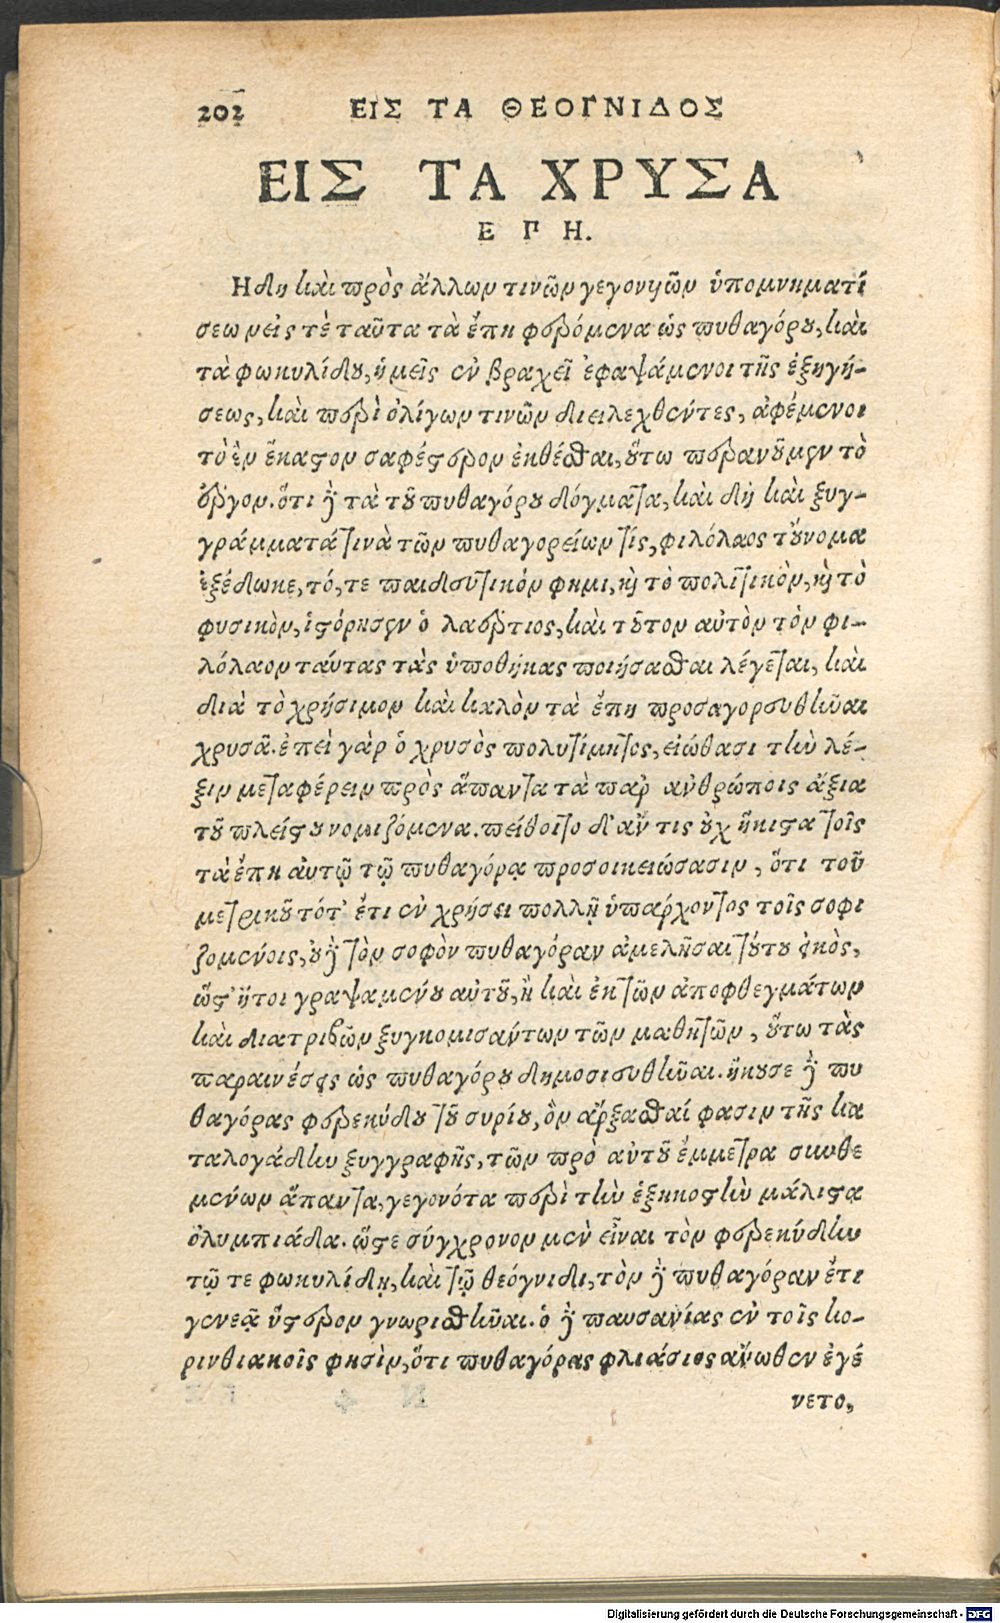 202 ΕΙΣ ΤΑ ΘΕΟΓΝΙΔΟΣ
ΕΙΣ ΤΑ ΧΡΥΣΑ
ΕΠΗ.
Ηδη καὶ πρὸς ἄλλων τινῶν γεγονυῶν ὑπομνηματί
σεων εἰς τὲ ταῦτα τὰ ἔπη φερόμενα ὡς πυθαγόρου, καὶ
τὰ φωκυλίδου, ἡμεῖς ἐν βραχεῖ ἐφαψάμενοι τῆς ἐξηγή-
σεως, καὶ περὶ ὀλίγων τινῶν διειλεχθέντες, ἀφέμενοι
τὸ ἓν ἕκαστον σαφέστερον ἐκθέσθαι, οὕτω περανοῦμεν τὸ
ἔργον. ὅτι δὲ τὰ τοῦ πυθαγόρου δόγματα, καὶ δὴ καὶ ξυγ-
γράμματά τινὰ τῶν πυθαγορείων τίς, φιλόλαος τοὔνομα
ἐξέδωκε, τό, τε παιδευτικόν φημι, καὶ τὸ πολιτικὸν, καὶ τὸ
φυσικὸν, ἱστόρησεν ὁ λαέρτιος, καὶ τοῦτον αὐτὸν τὸν φι-
λόλαον ταύτας τὰς ὑποθήκας ποιήσασθαι λέγεται, καὶ
διὰ τὸ χρήσιμον καὶ καλὸν τὰ ἔπη προσαγορευθῆναι
χρυσᾶ. ἐπεὶ γὰρ ὁ χρυσὸς πολυτίμητος, εἰώθασι τὴν λέ-
ξιν μεταφέρειν πρὸς ἅπαντα τὰ παρ' ἀνθρώποις ἄξια
τοῦ πλείστου νομιζόμενα. πείθοιτο δ' ἄν τις οὐχ ἥκιστα τοῖς
τὰ ἔπη αὐτῷ τῷ πυθαγόρᾳ προσοικειώσασιν, ὅτι τοῦ
μετρικοῦ τότ' ἔτι ἐν χρήσει πολλῇ ὑπάρχοντος τοῖς σοφι
ζομένοις, οὐδὲ τὸν σοφὸν πυθαγόραν ἀμελῆσαι τούτου εἰκὸς,
ὥστ' ἤτοι γραψαμένου αὐτοῦ, ἢ καὶ ἐκ τῶν ἀποφθεγμάτων
καὶ διατριβῶν ξυγκομισάντων τῶν μαθητῶν, οὕτω τὰς
παραινέσεις ὡς πυθαγόρου δημοσιευθῆναι. ἤκουσε δὲ πυ
θαγόρας φερεκύδου τοῦ συρίου, ὃν ἄρξασθαί φασιν τῆς κα
ταλογάδην ξυγγραφῆς, τῶν πρὸ αὐτοῦ ἔμμετρα συνθε
μένων ἅπαντα, γεγονότα περὶ τὴν ἑξηκοστὴν μάλιστα
ὀλυμπιάδα. ὥστε σύγχρονον μὲν εἶναι τὸν φερεκύδην
τῷ τε φωκυλίδῃ, καὶ τῷ θεόγνιδι, τὸν δὲ πυθαγόραν ἔτι
γενεᾷ ὕστερον γνωρισθῆναι. ὁ δὲ παυσανίας ἐν τοῖς κο-
ρινθιακοῖς φησὶν, ὅτι πυθαγόρας φλιάσιος ἄνωθεν ἐγέ
νετο,
Digitalisierung gefördert durch die Deutsche Forschungsgemeinschaft - DFG